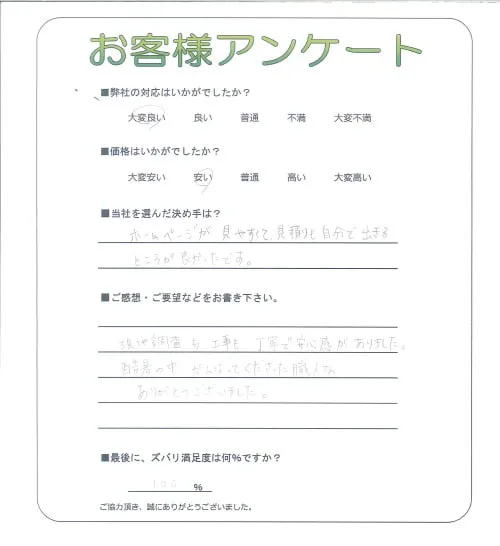 お客様アンケート
■弊社の対応はいかがでしたか？
大変良い 良い 普通 不満 大変不満
■価格はいかがでしたか？
大変安い 安い 普通 高い 大変高い
■当社を選んだ決め手は？
ホームページが見やすくて、見積りも自分で出きる
ところが良かったです。
■ご感想・ご要望などをお書き下さい。
現地調査も工事も丁寧で安心感がありました。
酷暑の中がんばってくださった職人さん
ありがとうございました。
■最後に、ズバリ満足度は何％ですか？
100 ％
ご協力頂き、誠にありがとうございました。